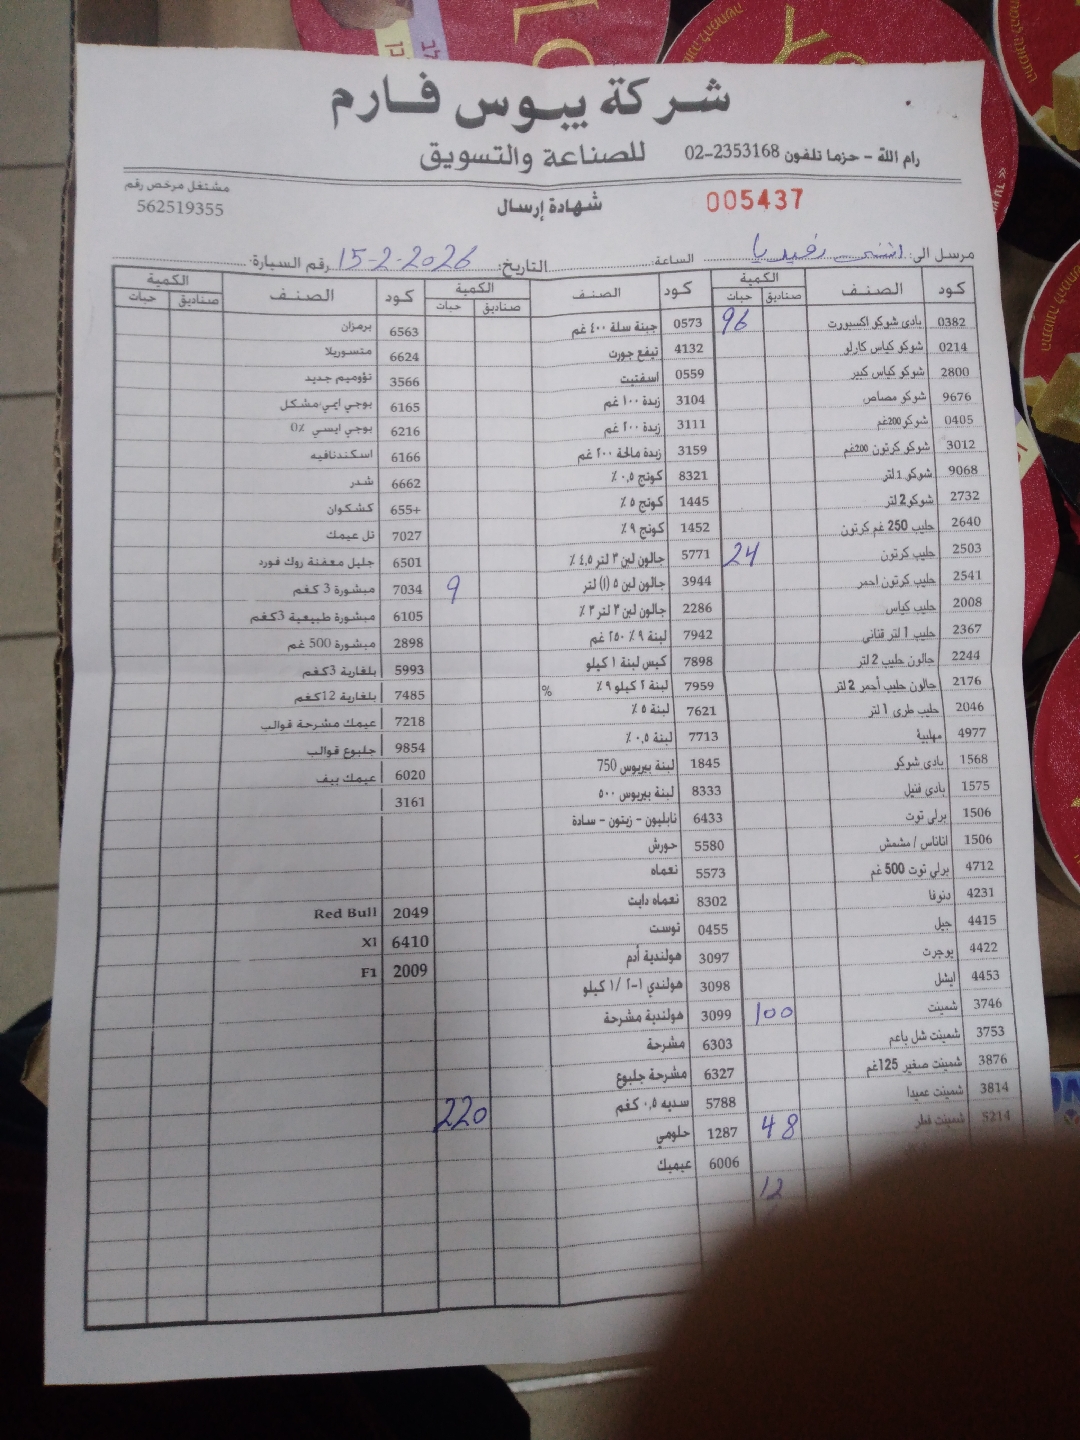 شركة يبوس فارم
للصناعة والتسويق
رام الله - حزما تلفون 02-2353168
شهادة إرسال
005437
مشتغل مرخص رقم
562519355
مرسل الى: رفيديا الساعة: التاريخ: 15-2-2026 رقم السيارة:
كود الصنف الكمية صناديق حبات
0382 بادي شوكو اكسبورت 96
0214 شوكو كياس كارلو
2800 شوكو كياس كبير
9676 شوكو مصاص
0405 شوكو 200غم
3012 شوكو كرتون 200غم
9068 شوكو 1 لتر
2732 شوكو 2 لتر
2640 حليب 250 غم كرتون
2503 حليب كرتون 24
2541 حليب كرتون احمر
2008 حليب كياس
2367 حليب 1 لتر قناني
2244 جالون حليب 2 لتر
2176 جالون حليب أحمر 2 لتر
2046 حليب طرى 1 لتر
4977 مهلبية
1568 بادي شوكو
1575 بادي فنيل
1506 برلي توت
1506 اناناس / مشمش
4712 برلي توت 500 غم
4231 دنوفا
4415 جيل
4422 يوجرت
4453 ايشل
3746 شمينت 100
3753 شمينت شل باعم
3876 شمينت صغير 125غم
3814 شمينت عميدا
5214 شمينت قطر 48
12
كود الصنف الكمية صناديق حبات
0573 جبنة سلة ٤٠٠ غم
4132 تيفع جورت
0559 اسفتيت
3104 زبدة ١٠٠ غم
3111 زبدة ٢٠٠ غم
3159 زبدة مالحة ٢٠٠ غم
8321 كوتج ٠,٥ ٪
1445 كوتج ٥ ٪
1452 كوتج ٩ ٪
5771 جالون لبن ٣ لتر ٤,٥ ٪
3944 جالون لبن ٥ (١) لتر 9
2286 جالون لبن ٣ لتر ٣ ٪
7942 لبنة ٩ ٪ ٢٥٠ غم
7898 كيس لبنة ١ كيلو
7959 لبنة ٢ كيلو ٩ ٪ %
7621 لبنة ٥ ٪
7713 لبنة ٠,٥ ٪
1845 لبنة بيريوس 750
8333 لبنة بيريوس ٥٠٠
6433 نابليون - زيتون - سادة
5580 حورش
5573 نعماه
8302 نعماه دايت
0455 توست
3097 هولندية أدم
3098 هولندي ١-٢ /١ كيلو
3099 هولندية مشرحة
6303 مشرحة
6327 مشرحة جلبوع
5788 سديه ٠,٥ كغم 220
1287 حلومي
6006 عيمبك
كود الصنف الكمية صناديق حبات
6563 برمزان
6624 متسوريلا
3566 نؤوميم جديد
6165 يوجي ايمي مشكل
6216 يوجي ايسي 0٪
6166 اسكندنافيه
6662 شدر
655+ كشكوان
7027 تل عيمك
6501 جليل معفنة روك فورد
7034 مبشورة 3 كغم
6105 مبشورة طبيعية 3كغم
2898 مبشورة 500 غم
5993 بلغارية 3كغم
7485 بلغارية 12كغم
7218 عيمك مشرحة قوالب
9854 جلبوع قوالب
6020 عيمك بيف
3161
2049 Red Bull
6410 Xl
2009 F1